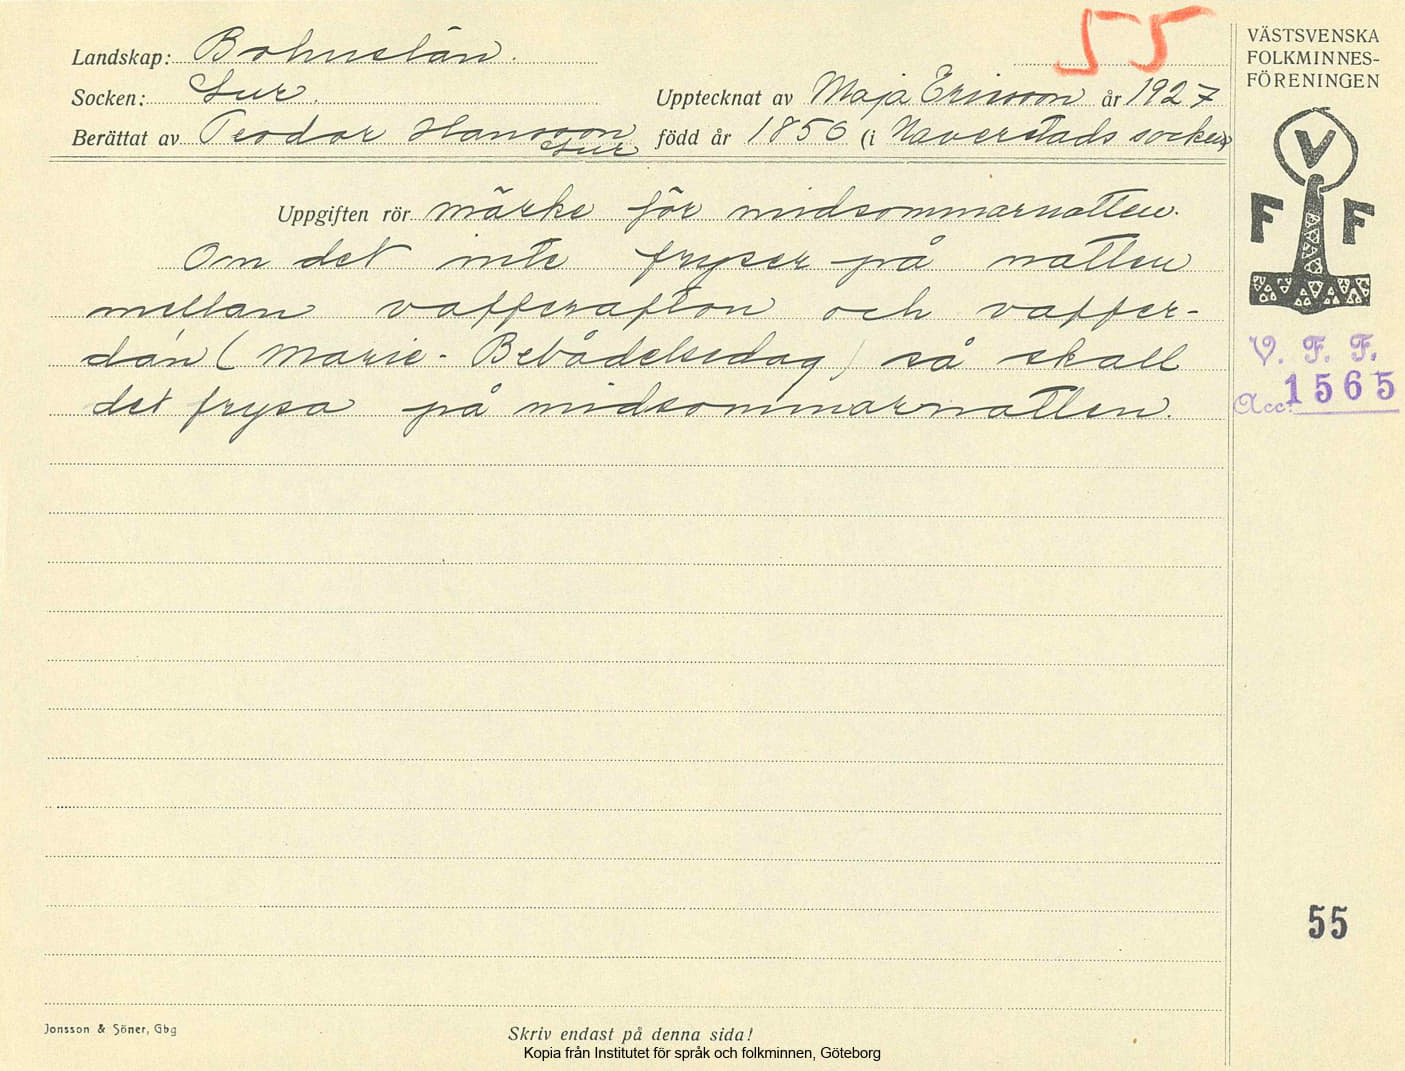 55
VÄSTSVENSKA
FOLKMINNES-
FÖRENINGEN
Landskap: Bohuslän.
Socken: Lur.
Upptecknat av Maja Ericsson år 1927
Berättat av Teodor Hansson
Lur
född år 1856 (i Naverstads socken)
V
F F
Uppgiften rör märke för midsommarnatten.
Om det inte fryser på natten
mellan vafferafton och vaffer-
dán (Marie-Bebådelsedag) så skall
det frysa på midsommarnatten.
V. F. F.
Acc: 1565
55
Jonsson & Söner, Gbg
Skriv endast på denna sida!
Kopia från Institutet för språk och folkminnen, Göteborg